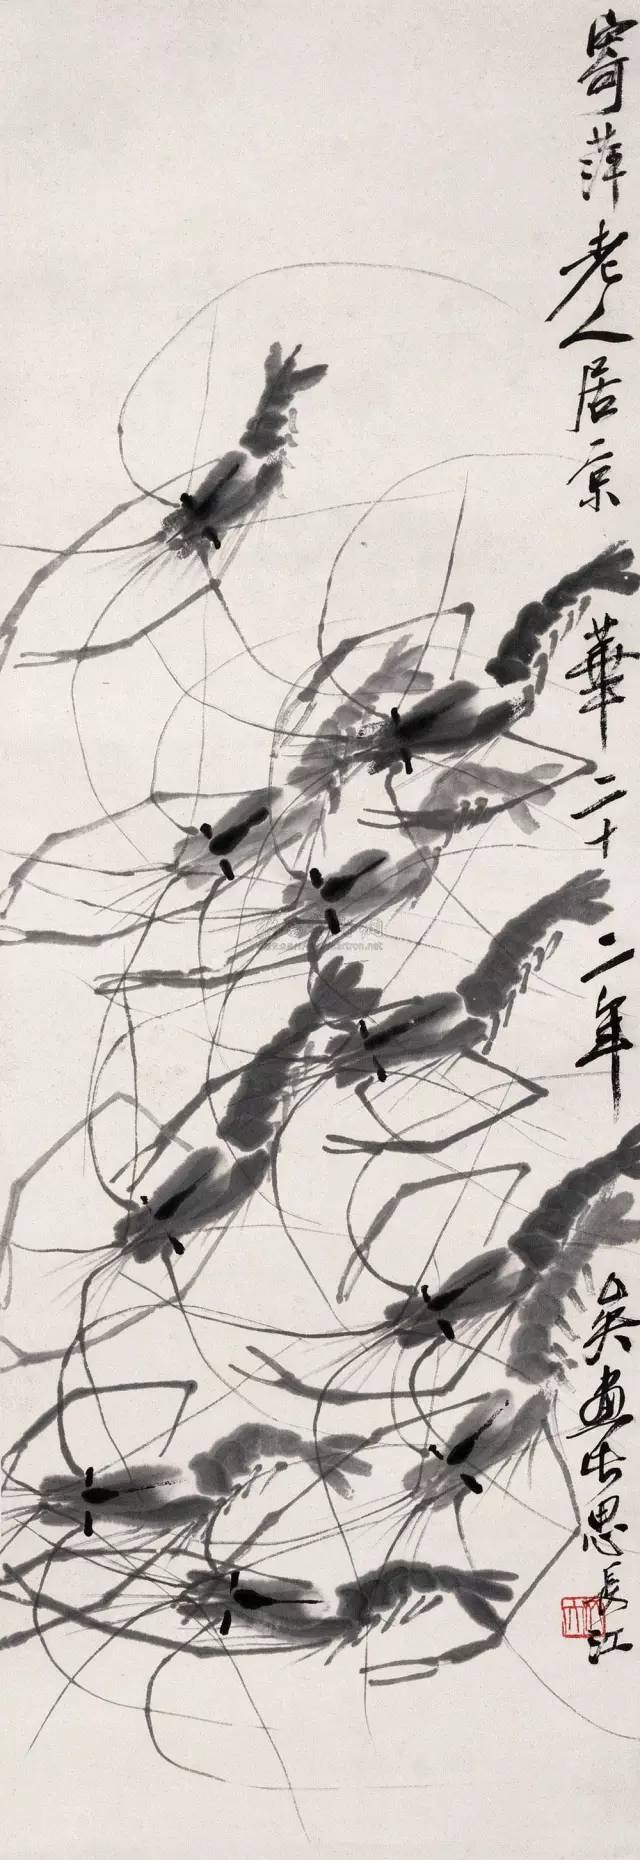 寄萍老人居京華二十二年矣画此思長江